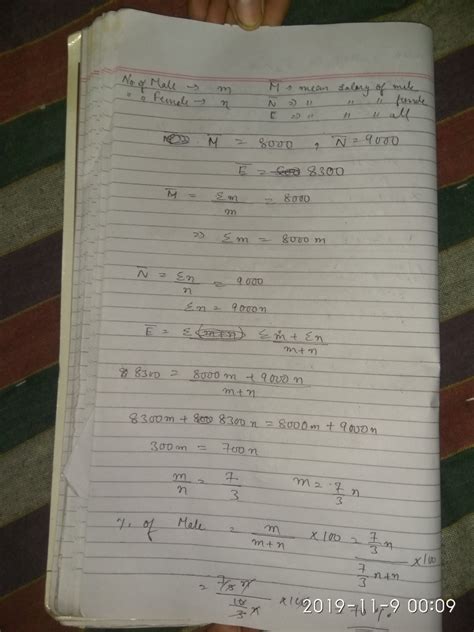 No of Male → m M̅ → mean salary of male
" " Female → n N̅ ⇒ " " " female
E ⇒ " " " all
M̅ = 8000 , N̅ = 9000
E̅ = 8300
M̅ = Σm/m = 8000
⇒ Σm = 8000 m
N̅ = Σn/n = 9000
Σn = 9000n
E̅ = Σ(m+n) Σm + Σn/m+n
8300 = 8000m + 9000n/m+n
8300m + 8300n = 8000m + 9000n
300m = 700n
m/n = 7/3 m = 7/3 n
% of Male = m/m+n × 100 = 7/3 n/7/3 n+n × 100
= 7/3 n/10/3 n × 100
2019-11-9 00:09